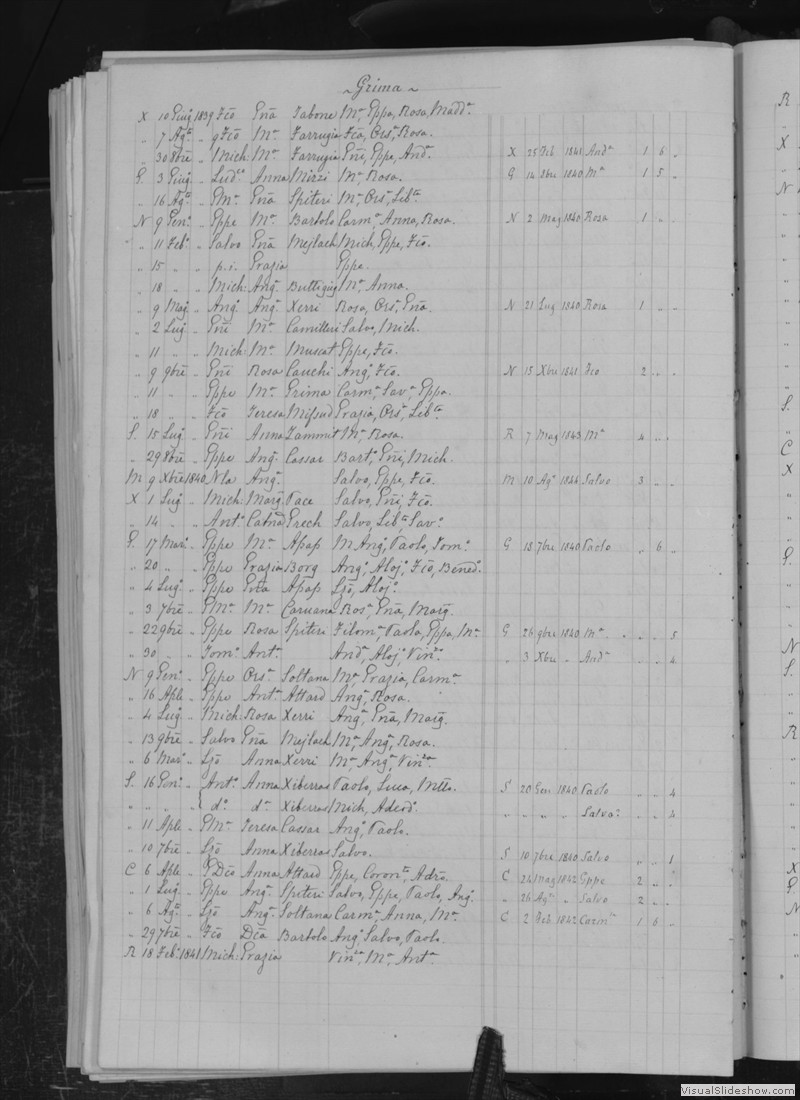 ~ Grima ~
X 10 Giug 1839 Fco Ena Tabone Ma, Eppa, Rosa, Madda.
" 7 Aga " gFco Ma Farrugia Fca, Orsa, Rosa.
" 30 8bre " Mich: Ma Farrugia Eni, Eppe, Anda. X 25 Feb 1841 Anda 1 6 "
G. 3 Giug " Luda Anna Mizzi Ma, Rosa. G 14 8bre 1840 Ma 1 5 "
" 16 Aga " GMa Ena Spiteri Ma, Orsa, Liba.
N 9 Geno " Eppe Ma Bartolo Carma, Anna, Rosa. N 2 Mag 1840 Rosa 1 " "
" 11 Febo " Salvo Ena Mejlach Mich, Eppe, Fco.
" 15 " " p.i. Grazia Eppa.
" 18 " " Mich: Anga Buttigieg Ma, Anna.
" 9 Mago " Ango Anga Xerri Rosa, Orsa, Ena. N 21 Lug 1840 Rosa 1 " "
" 2 Lug " Eni Ma Camilleri Salvo, Mich.
" 11 " " Mich: Ma Muscat Eppe, Fco.
" 9 9bre " Eni Rosa Cauchi Ango, Fco. N 15 Xbre 1841 Fco 2 " "
" 11 " " Eppe Ma Grima Carma, Sava, Eppa.
" 18 " " Fco Teresa Mifsud Grazia, Orsa, Liba.
S. 15 Lug " Eni Anna Zammit Ma, Rosa. R 7 Mag 1843 Ma 4 " "
" 29 8bre " Eppe Anga Cassar Barto, Eni, Mich.
M 9 Xbre 1840 Nla Anga Salvo, Eppe, Fco. M 10 Ago 1844 Salvo 3 " "
X 1 Lug " Mich: Marg. Pace Salvo, Eni, Fco.
" 14 " " Anto Catna Grech Salvo, Liba, Sava.
G. 17 Maro " Eppe Ma Apap M Anga, Paolo, Tomo. G 18 7bre 1840 Paolo " 6 "
" 20 " " Eppe Grazia Borg Ango, Alojo, Fco, Bened.
" 4 Lug " Eppe Evta Apap Ljo, Alojo.
" 3 7bre " GMa Ma Caruana Rosa, Ena, Marg.
" 22 9bre " Eppe Rosa Spiteri Filoma, Paola, Eppa, Ma. G 26 9bre 1840 Ma " " 5
" 30 " " Tomo Anta Anda, Alojo, Vinza. " 3 Xbre " Anda " " 4
N 9 Geno " Eppe Orsa Soltana Ma, Grazia, Carma.
" 16 Aple " Eppe Anta Attard Anga, Rosa.
" 4 Lug " Mich: Rosa Xerri Anga, Ena, Marg.
" 13 9bre " Salvo Ena Mejlach Ma, Anga, Rosa.
" 6 Maro " Ljo Anna Xerri Ma, Anga, Vinza.
S. 16 Geno " Anto Anna Xiberras Paolo, Luca, Mtto. S 20 Gen 1840 Paolo " " 4
" " " " do da Xiberras Mich, Adeoda. " " " " Salva " " 4
" 11 Aple " GMa Teresa Cassar Ango, Paolo.
" 10 7bre " Ljo Anna Xiberras Salvo. S 10 7bre 1840 Salvo " " 1
C 6 Aple " GDco Anna Attard Eppe, Corona, Adro. C 24 Mag 1842 Eppe 2 " "
" 1 Lug " Eppe Anga Spiteri Salvo, Eppe, Paolo, Ango. " 26 Aga " Salvo 2 " "
" 6 Aga " Ljo Anga Soltana Carma, Anna, Ma. C 2 Feb 1842 Carma 1 6 "
" 29 7bre " Fco Dca Bartolo Ango, Salvo, Paolo.
R 18 Febo 1841 Mich: Grazia Vinza, Ma, Anta.
VisualSlideshow.com